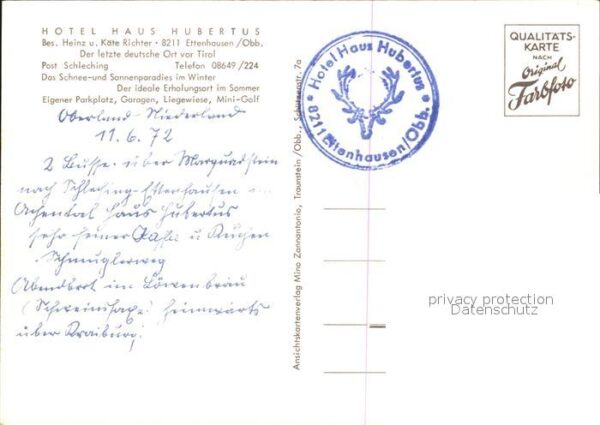 HOTEL HAUS HUBERTUS
Bes. Heinz u. Käte Richter • 8211 Ettenhausen/Obb.
Der letzte deutsche Ort vor Tirol
Post Schleching Telefon 08649/224
Das Schnee-und Sonnenparadies im Winter
Der ideale Erholungsort im Sommer
Eigener Parkplatz, Garagen, Liegewiese, Mini-Golf
Oberland - Niederland
11.6.72
2 Busse: über Marquadstein
nach Schleching-Ettenhausen
Achental Haus Hubertus
sehr feiner Kaffee u Kuchen
Schmugglerweg
Abendbrot im Löwenbräu
heimwärts
über Kraiburg!
Ansichtskartenverlag Mino Zannantonio, Traunstein/Obb., Schützenstr. 7a
Hotel Haus Hubertus
8211 Ettenhausen/Obb.
QUALITÄTS-
KARTE
NACH
Original
Farbfoto
privacy protection
Datenschutz